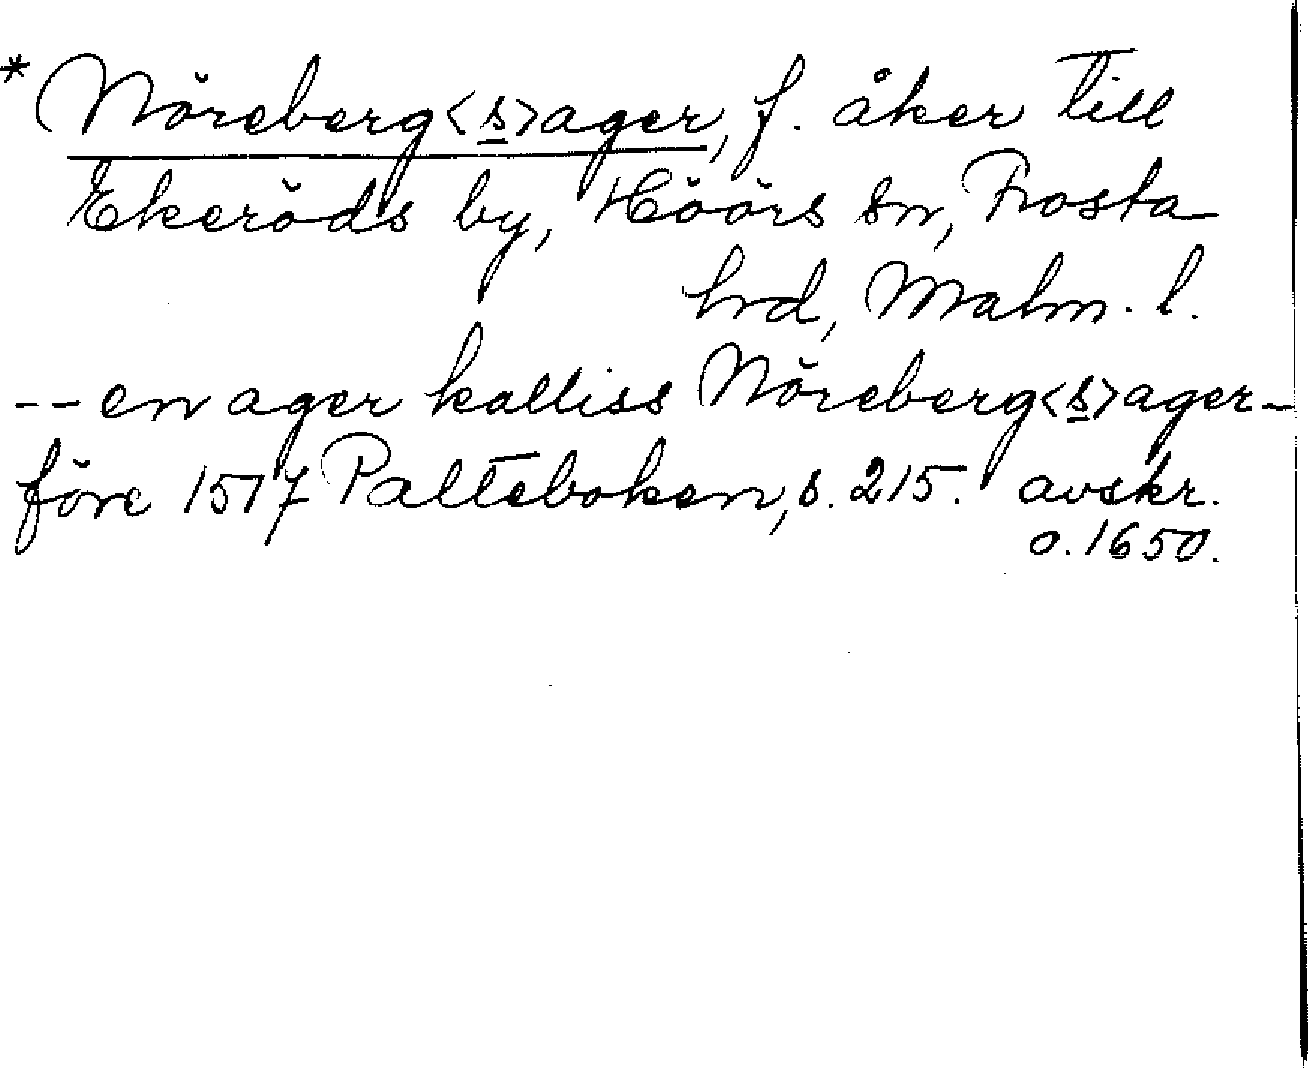 *Nöreberg<s>ager, f. åker till
Ekeröds by, Höörs sn, Frosta
hrd, Malm. l.
-- en ager kalliss Nöreberg<s>ager -
före 1517 Palteboken, s. 215. avskr.
o. 1650.